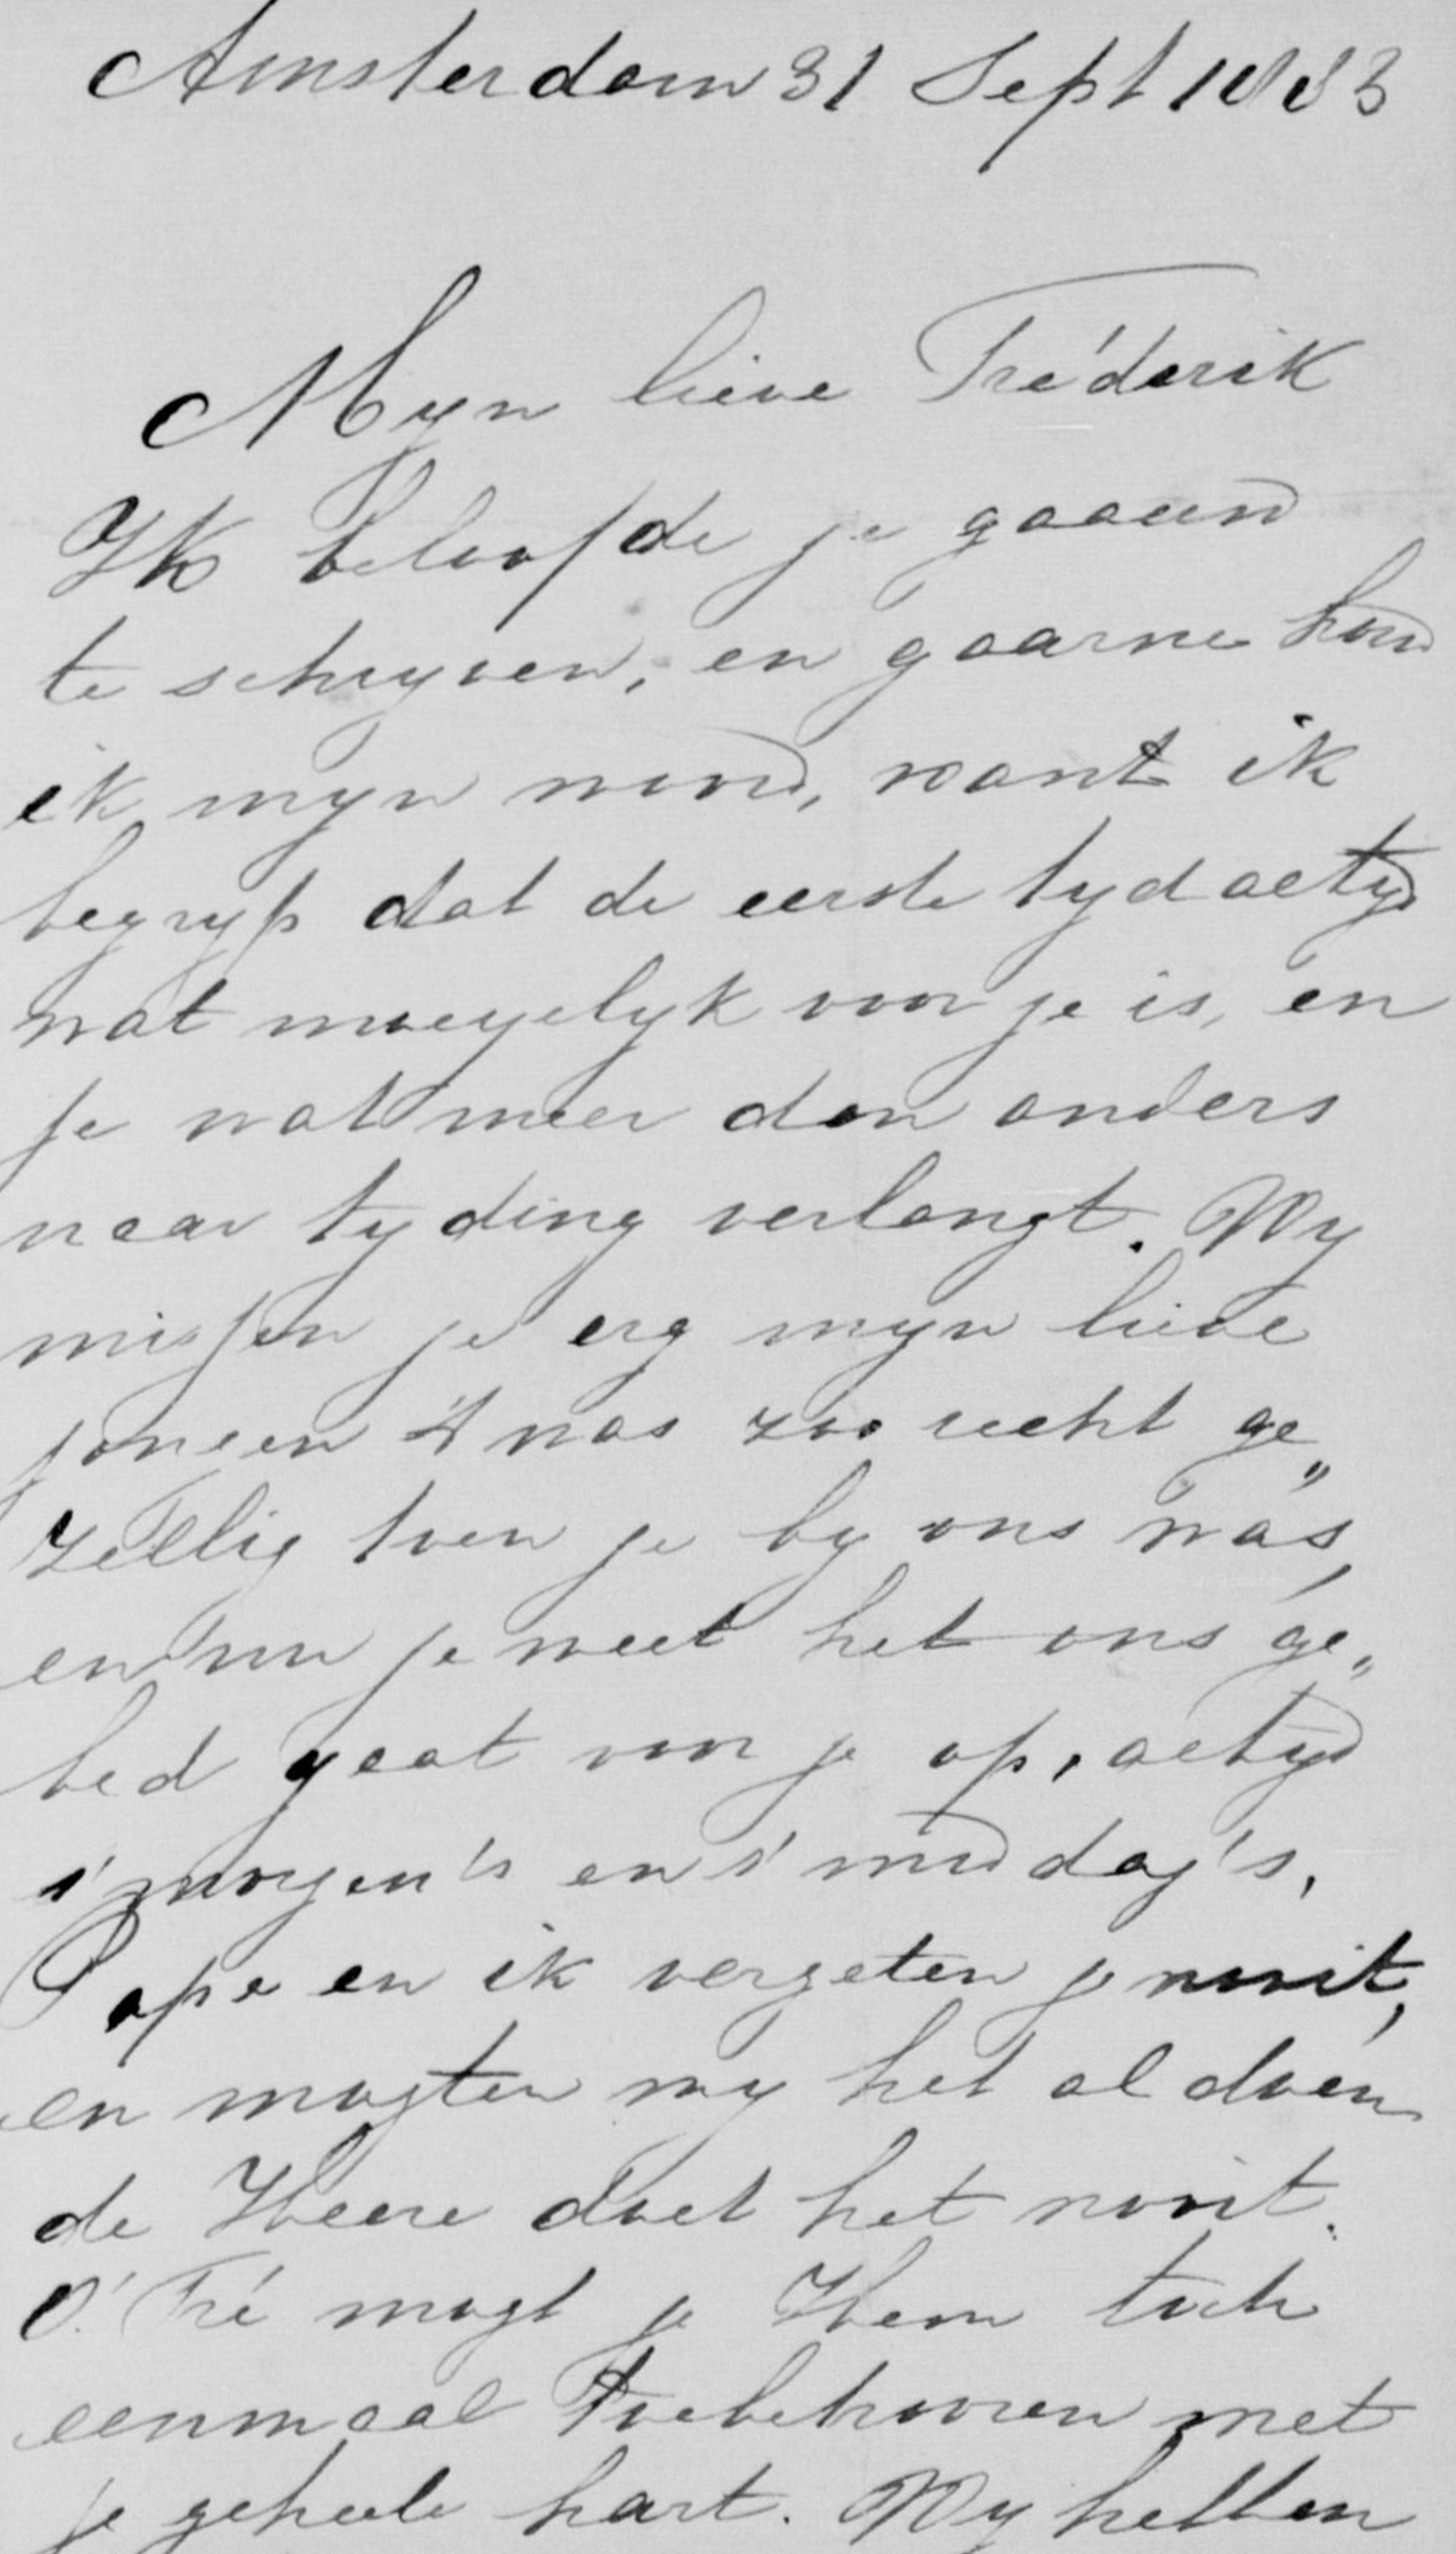 Amsterdam 31 Sept 1883
Myn lieve Fréderik
Ik beloofde je gaauw
te schryven, en gaarne houd
ik myn woord, want ik
begryp dat de eerste tyd altyd
wat moeyelyk voor je is, en
je wat meer dan anders
naar tyding verlangt. Wy
missen je erg myn lieve
jongen 't was zoo recht ge„
zellig toen je by ons was,
en nu je weet het ons ge„
bed gaat voor je op, altyd
s'morgen's en s'middag's,
Papa en ik vergeten je nooit,
en mogten wy het al doen
de Heere doet het nooit.
O! Fré mogt je Hem toch
eenmaal toebehooren met
je geheele hart. Wy hebben